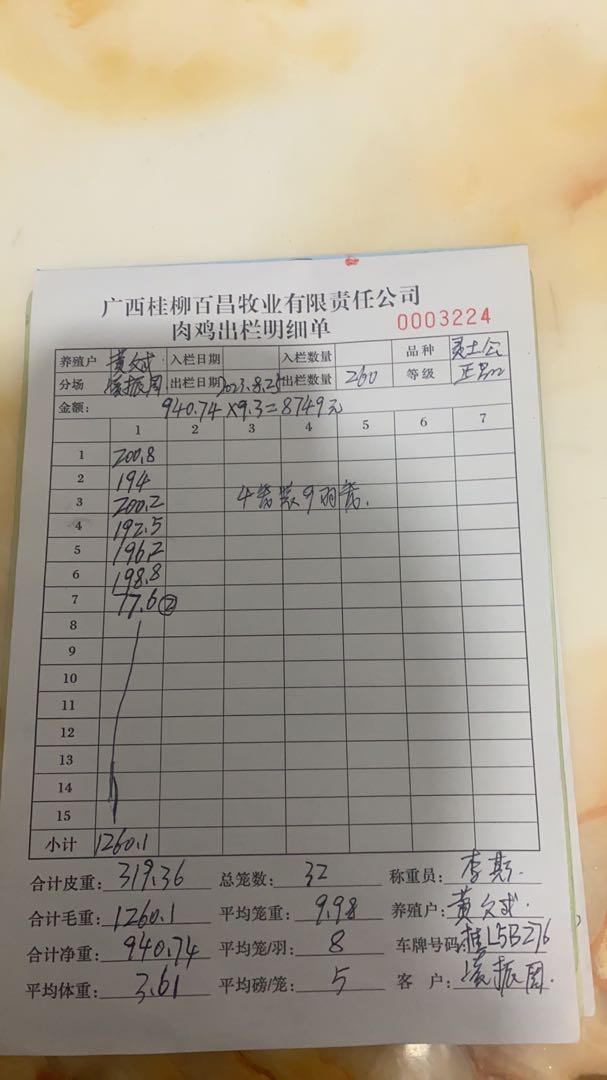 广西桂柳百昌牧业有限责任公司
肉鸡出栏明细单
0003224
养殖户 黄文成 入栏日期 入栏数量 品种 灵土公
分场 凌振周 出栏日期 2023.8.25 出栏数量 260 等级 正品
金额: 940.74×9.3=8749元
1 2 3 4 5 6 7
1 200.8
2 194
3 200.2 4 装9羽
4 192.5
5 196.2
6 198.8
7 77.6 ②
8
9
10
11
12
13
14
15
小计 1260.1
合计皮重: 319.36 总笼数: 32 称重员: 李斯.
合计毛重: 1260.1 平均笼重: 9.98 养殖户: 黄文成.
合计净重: 940.74 平均笼/羽: 8 车牌号码: 桂L5B276
平均体重: 3.61 平均磅/笼: 5 客户: 凌振周.